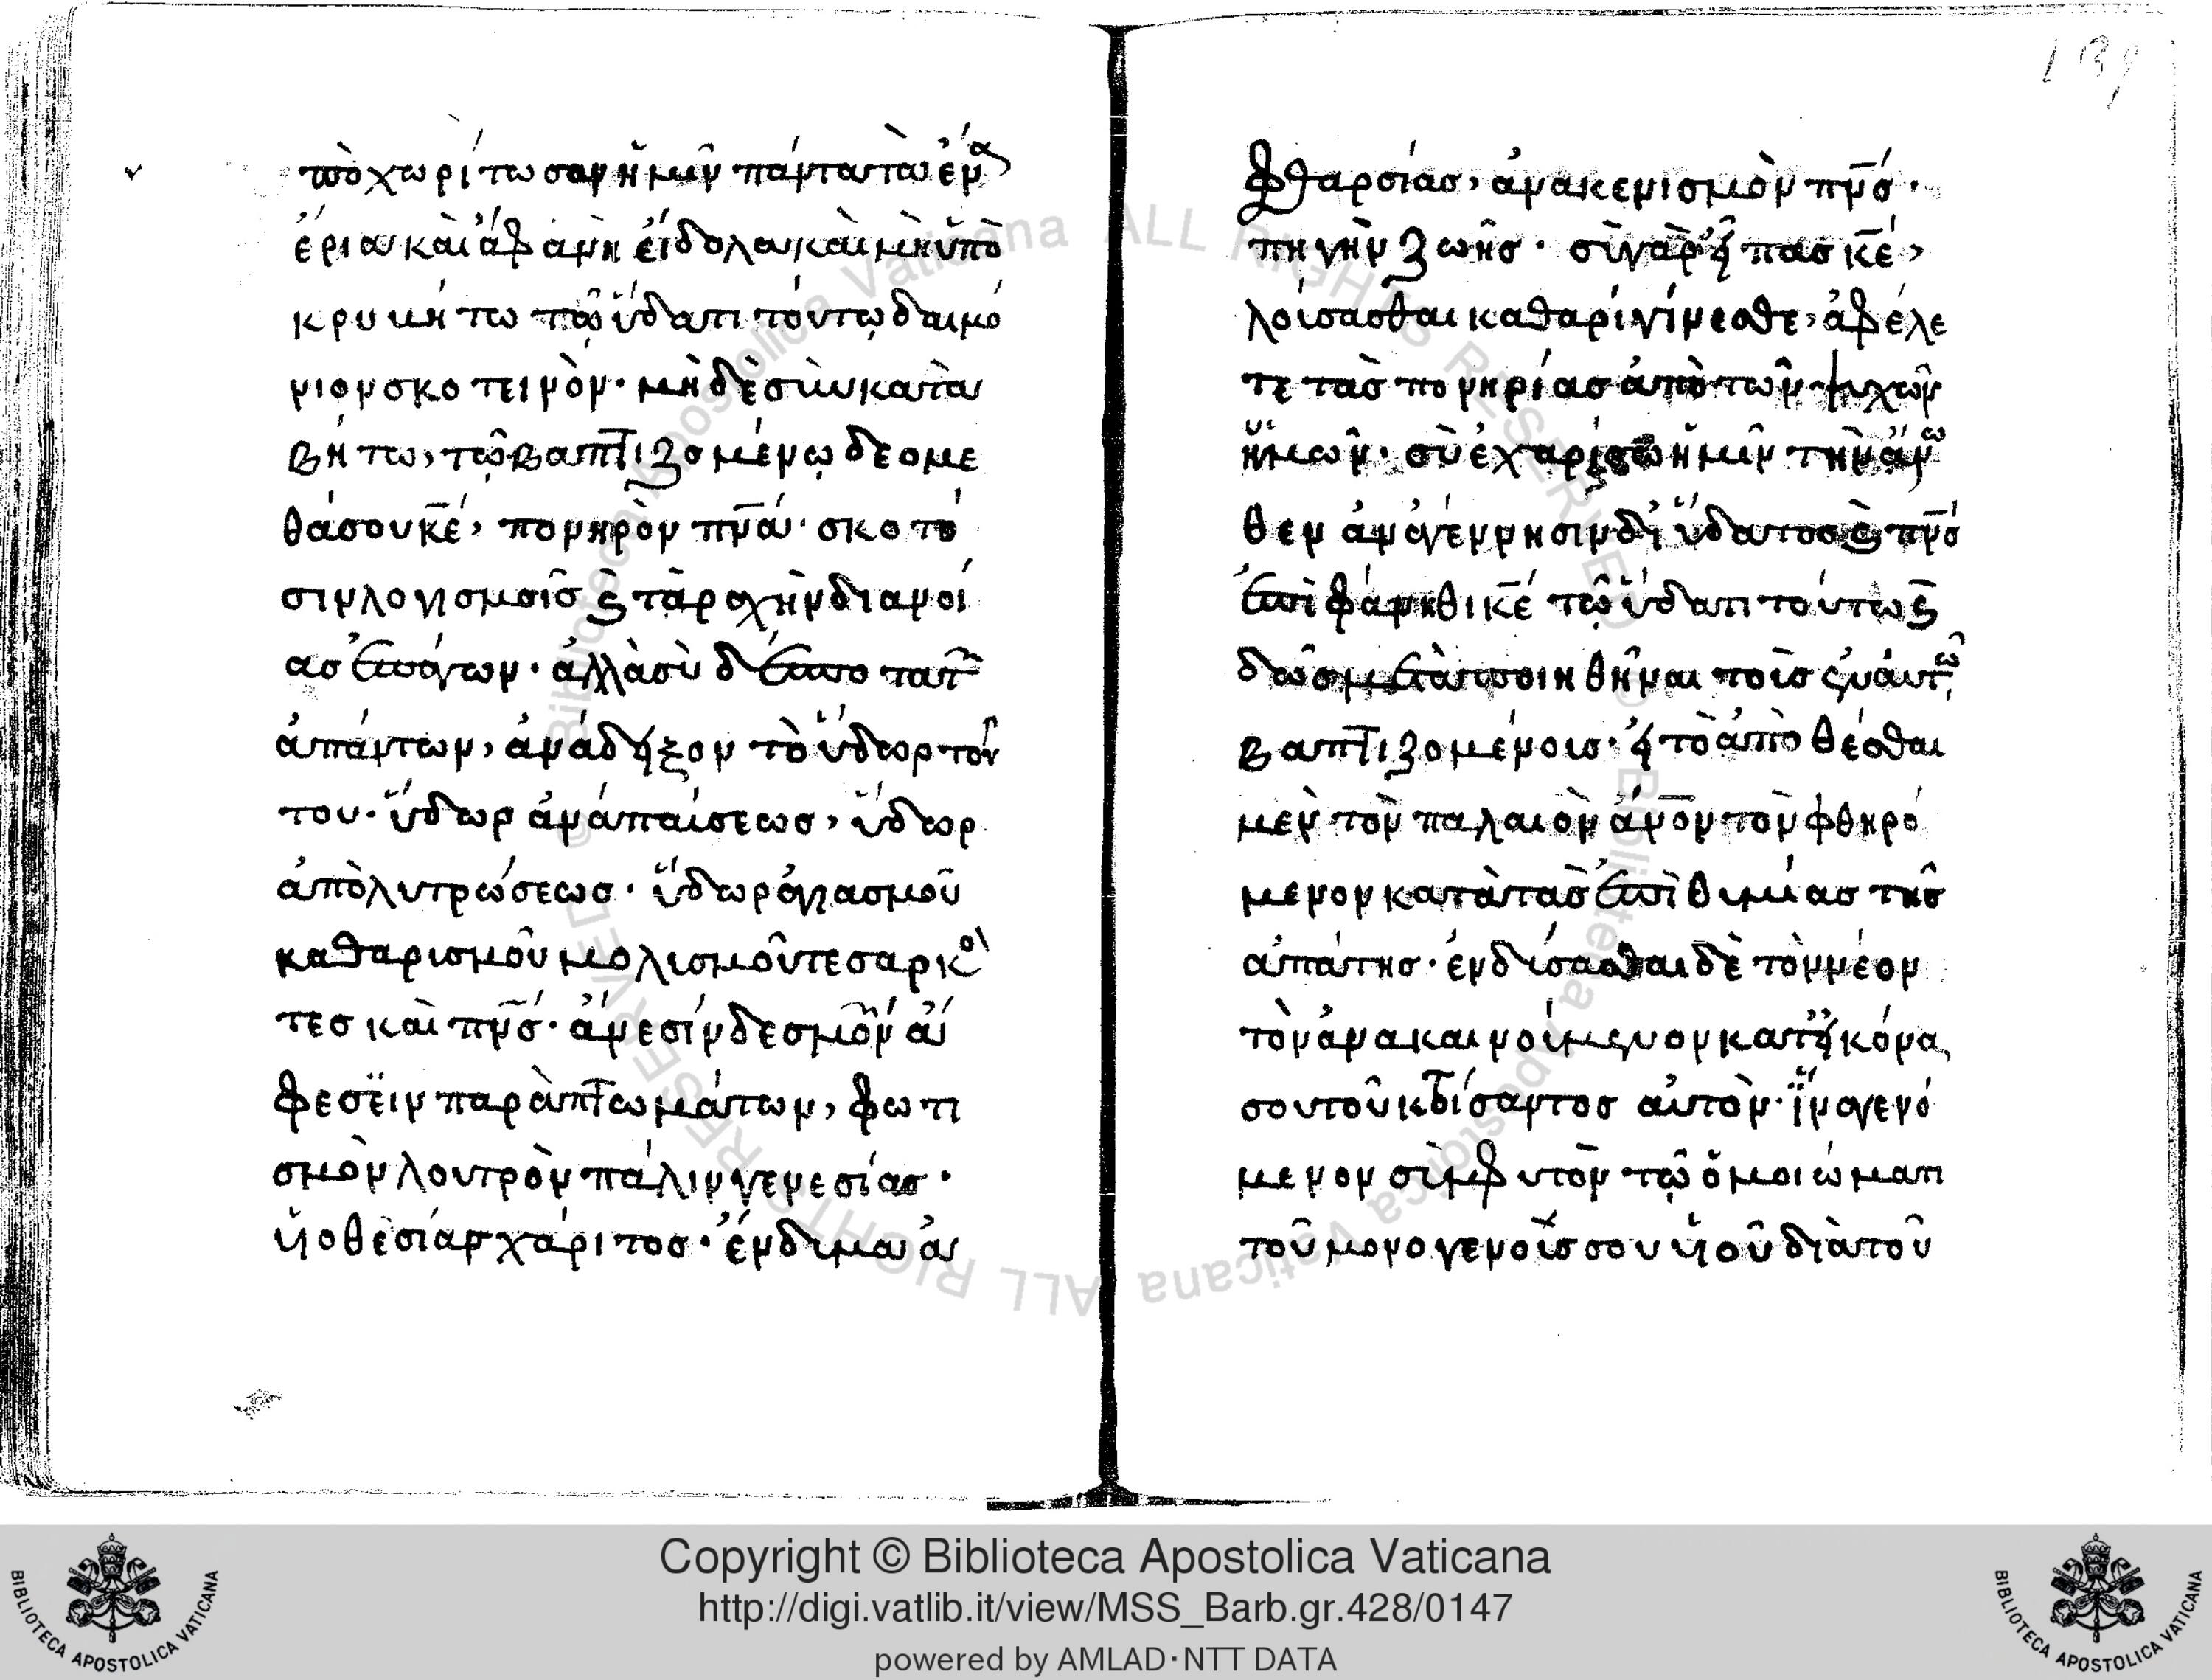 ποχωρίτωσαν ἡμῖν πάντα τὰ ἐνα
έρια καὶ ἀφανῆ εἴδολα καὶ μὴ ὑπὸ
κρυβήτω τῷ ὕδατι τούτῳ δαιμό
νιον σκοτεινὸν· μὴδὲ σὺν κατα
βήτω, τῷ βαπτιζομένῳ δεομε
θά σου κ̅ε̅, πονηρὸν πν̅α̅· σκοτό
σιν λογισμοῖς ϗ ταραχὴν διανοί
ας ἐπάγων· ἀλλὰ σὺ δέσποτα τῶν
ἀπάντων, ἀνάδειξον τὸ ὕδωρ τοῦ
του· ὕδωρ ἀναπαύσεως, ὕδωρ
ἀπολυτρώσεως· ὕδωρ ἁγιασμοῦ
καθαρισμοῦ μολισμοῦ τε σαρκὸ
τες καὶ πν̅ς̅· ἄνεσιν δεσμῶν ἄ
φεσϊν παραπτωμάτων, φωτι
σμὸν λουτρὸν παλινγενεσίας·
ὑοθεσίας χάριτος· ἔνδιμα ἀ
139
φθαρσίας, ἀνακενισμὸν πν̅ς̅·
πηγὴν ζωῆς· σὺ γὰρ εἶπας κ̅ε̅,
λούσασθαι καθαρί γίνεσθε, ἀφέλε
τε τὰς πονηρίας ἀπὸ τῶν ψυχῶν
ἡμῶν· σὺ ἐχαρίσω ἡμῖν τὴν ἄνω
θεν ἀναγέννησιν δι ὕδατος ϗ πν̅ς̅
ἐπιφάνηθι κ̅ε̅ τῷ ὕδατι τούτω ϗ
δῶς μεταποιηθῆναι τοῖς ἐν αὐτῶ
βαπτιζομένοις· εἰ τὸ ἀποθέσθαι
μὲν τὸν παλαιὸν ἄν̅ο̅ν̅ τὸν φθηρό
μενον κατὰ τὰς ἐπιθυμίας τῆς
ἀπάτης· ἐνδίσασθαι δὲ τὸν νέον
τὸν ἀνακαινούμενον κατ εἰκόνα
σου τοῦ κτίσαντος αὐτὸν· ἵνα γενό
μενον σύμφυτον τῷ ὁμοιώματι
τοῦ μονογενοῦς σου ὑοῦ διὰ τοῦ
Copyright © Biblioteca Apostolica Vaticana
http://digi.vatlib.it/view/MSS_Barb.gr.428/0147
powered by AMLAD·NTT DATA
BIBLIOTECA APOSTOLICA VATICANA
BIBLIOTECA APOSTOLICA VATICANA